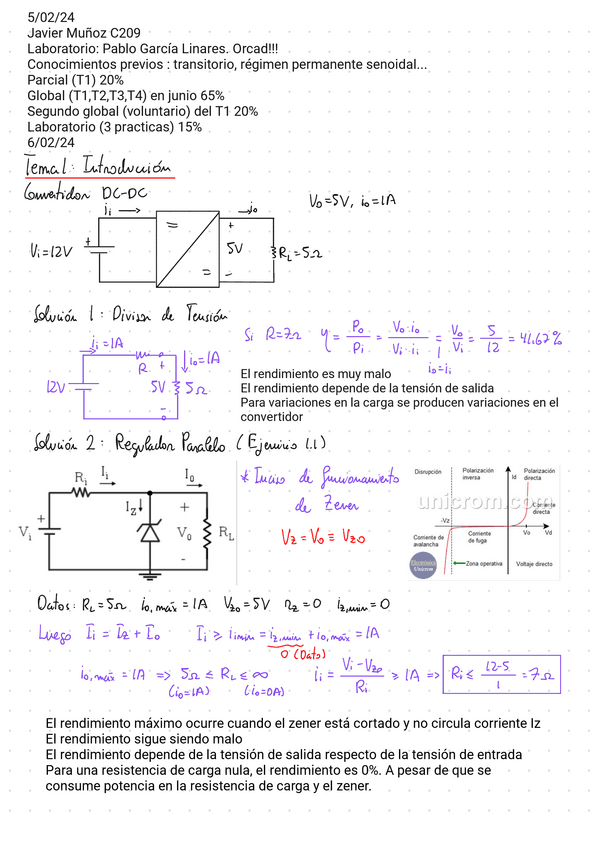 5/02/24
Javier Muñoz C209
Laboratorio: Pablo García Linares. Orcad!!!
Conocimientos previos : transitorio, régimen permanente senoidal...
Parcial (T1) 20%
Global (T1,T2,T3,T4) en junio 65%
Segundo global (voluntario) del T1 20%
Laboratorio (3 practicas) 15%
6/02/24
Tema 1: Introducción
Convertidor DC-DC
ii → →io Vo=5V, io=1A
Vi=12V + = = + 5V - RL=5Ω
Solución 1: Divisor de Tensión
Si R=7Ω η = Po/Pi = Vo·io/Vi·ii = Vo/Vi = 5/12 = 41,67%
io=ii
ii=1A
R + ↓io=1A
12V 5V 5Ω
-
El rendimiento es muy malo
El rendimiento depende de la tensión de salida
Para variaciones en la carga se producen variaciones en el
convertidor
Solución 2: Regulador Paralelo (Ejercicio 1.1)
Ri Ii Io
Iz↓ +
Vi + - Vo RL
-
* Inciso de funcionamiento
de Zener
Vz = Vo ≡ Vzo
Disrupción Polarización inversa Id Polarización directa
unicrom.com
Corriente directa
-Vz Vo Vd
Corriente de avalancha Corriente de fuga
Electrónica Unicrom Zona operativa Voltaje directo
Datos: RL=5Ω io,máx=1A Vzo=5V rz=0 iz,min=0
Luego Ii = Iz + Io Ii ≥ iimin = iz,min + io,máx = 1A
0 (Dato)
io,máx = 1A => 5Ω ≤ RL ≤ ∞ ii = Vi-Vzo/Ri ≥ 1A => Ri ≤ 12-5/1 = 7Ω
(io=1A) (io=0A)
El rendimiento máximo ocurre cuando el zener está cortado y no circula corriente Iz
El rendimiento sigue siendo malo
El rendimiento depende de la tensión de salida respecto de la tensión de entrada
Para una resistencia de carga nula, el rendimiento es 0%. A pesar de que se
consume potencia en la resistencia de carga y el zener.